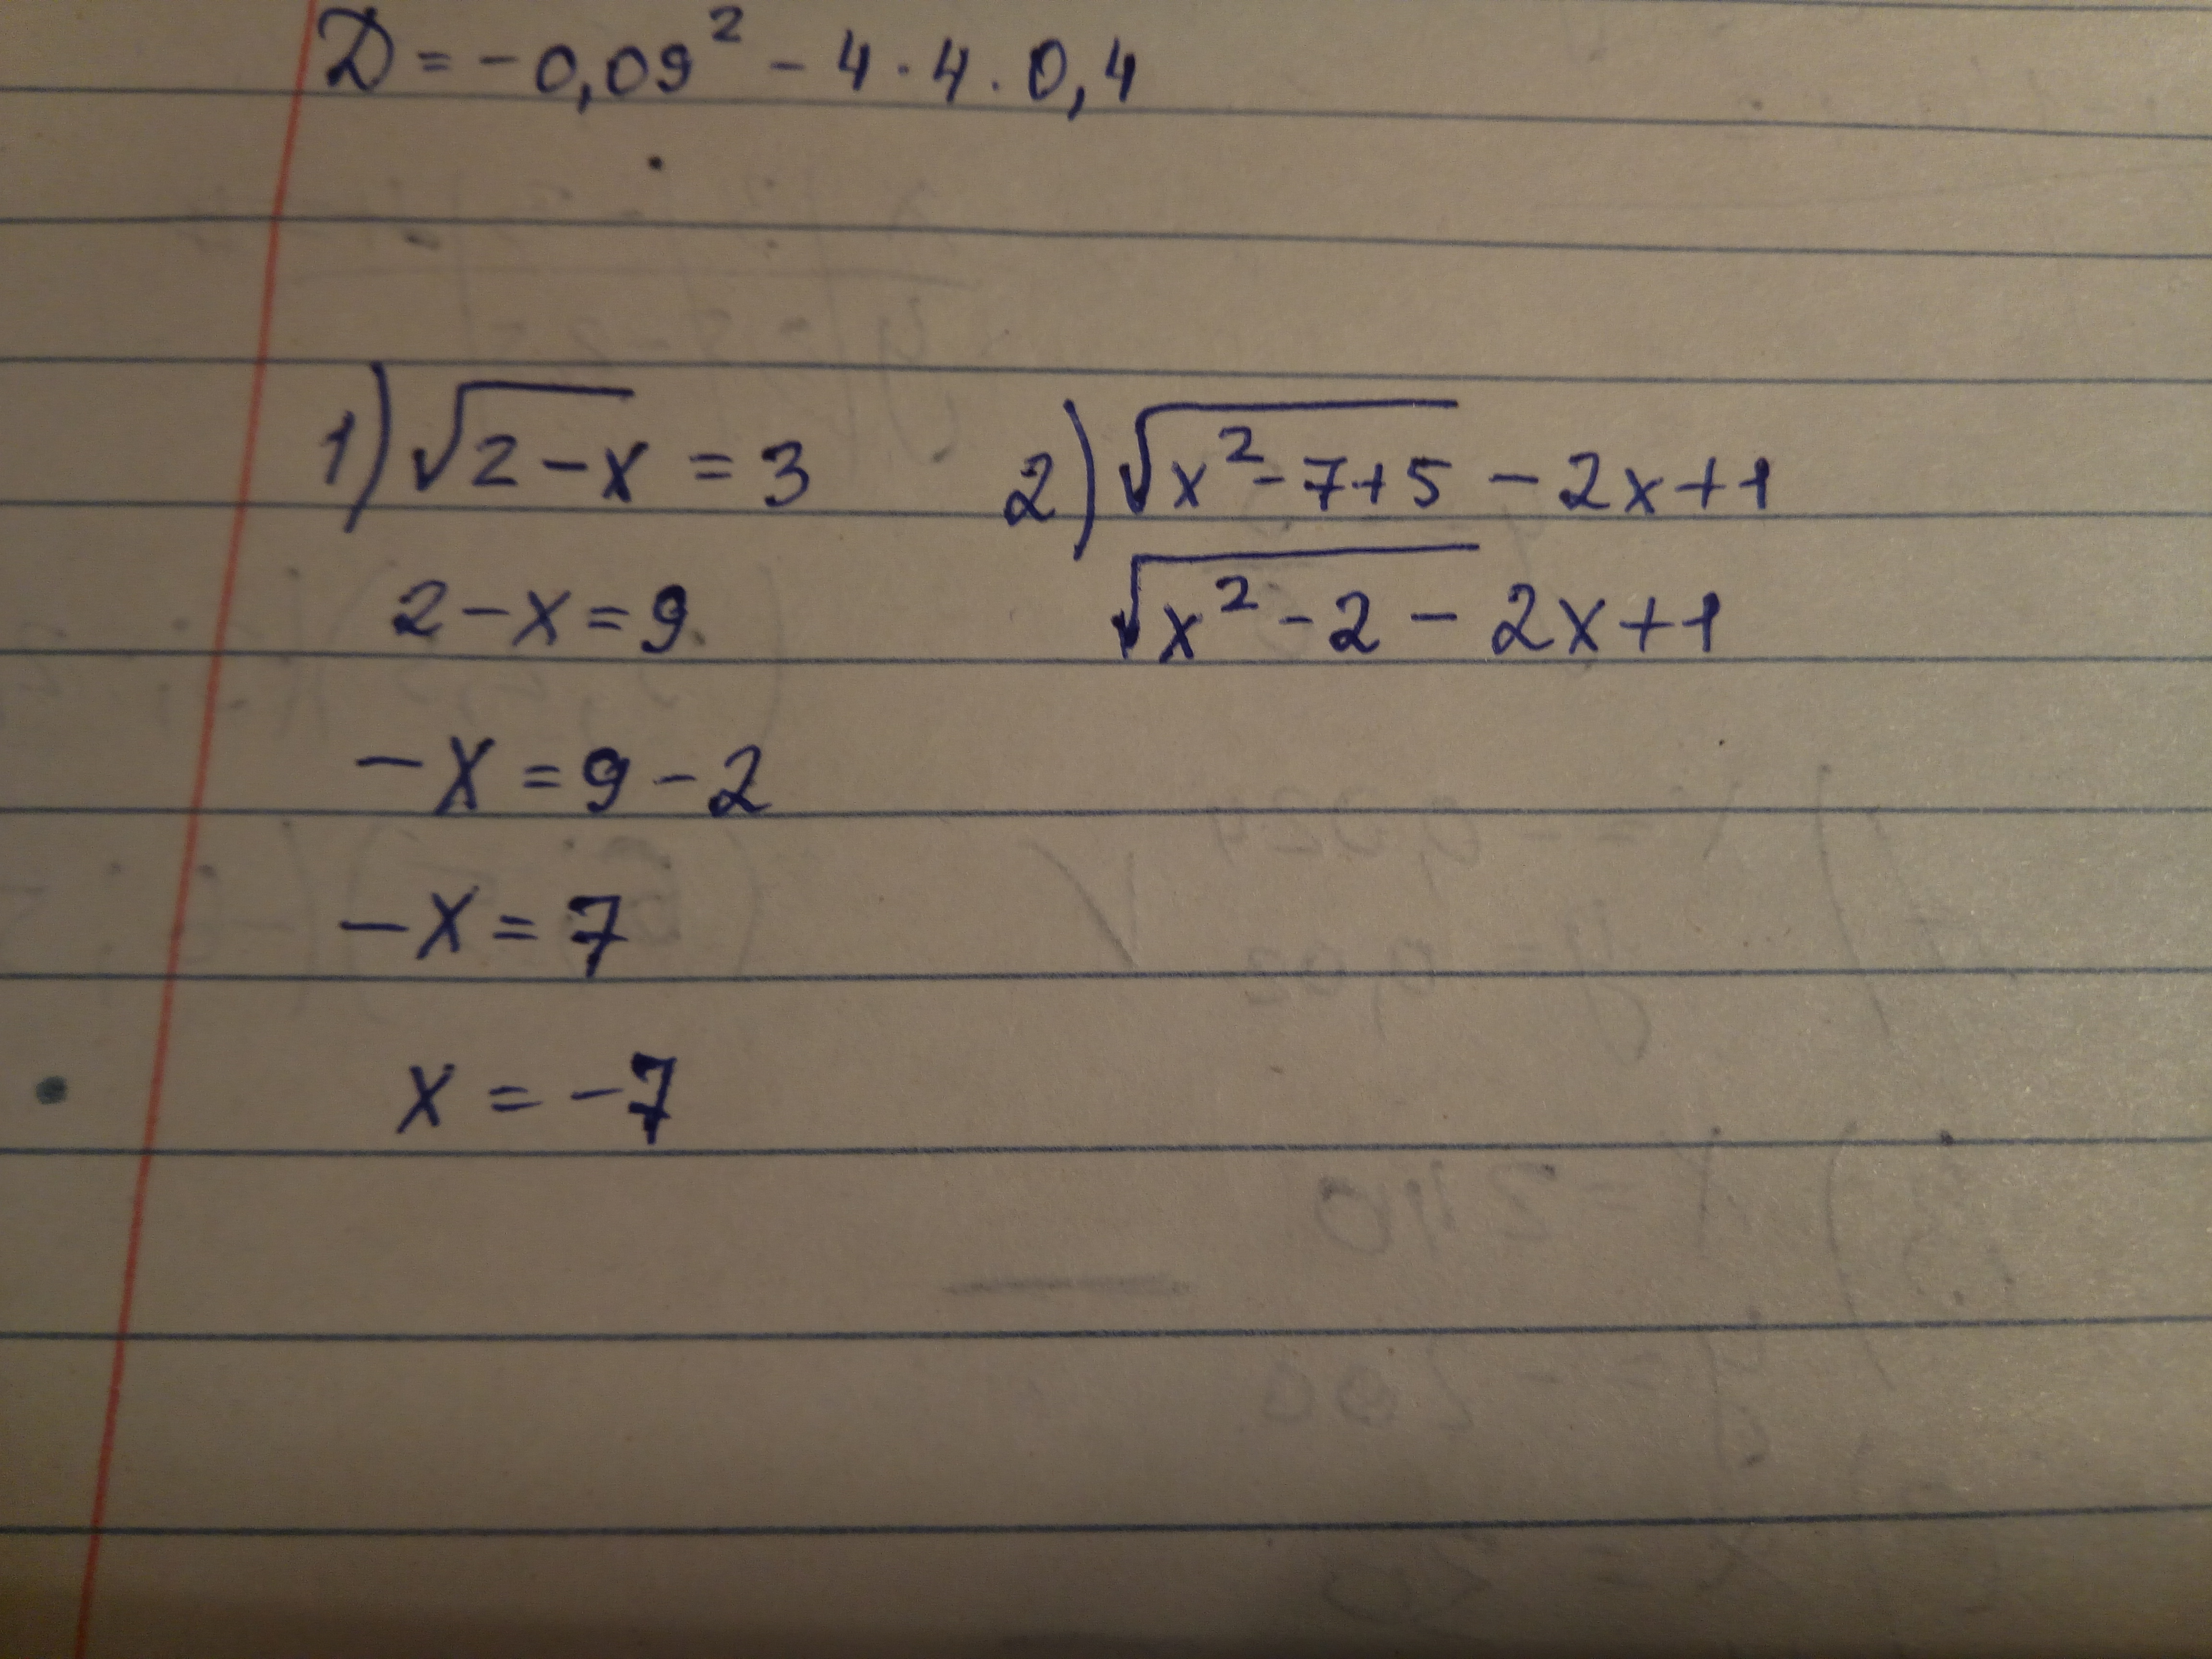 D = -0,09² - 4 · 4 · 0,4
1) √2-x = 3
2-x=9
-x = 9-2
-x = 7
x = -7
2) √x²-7+5 - 2x+1
√x²-2 - 2x+1